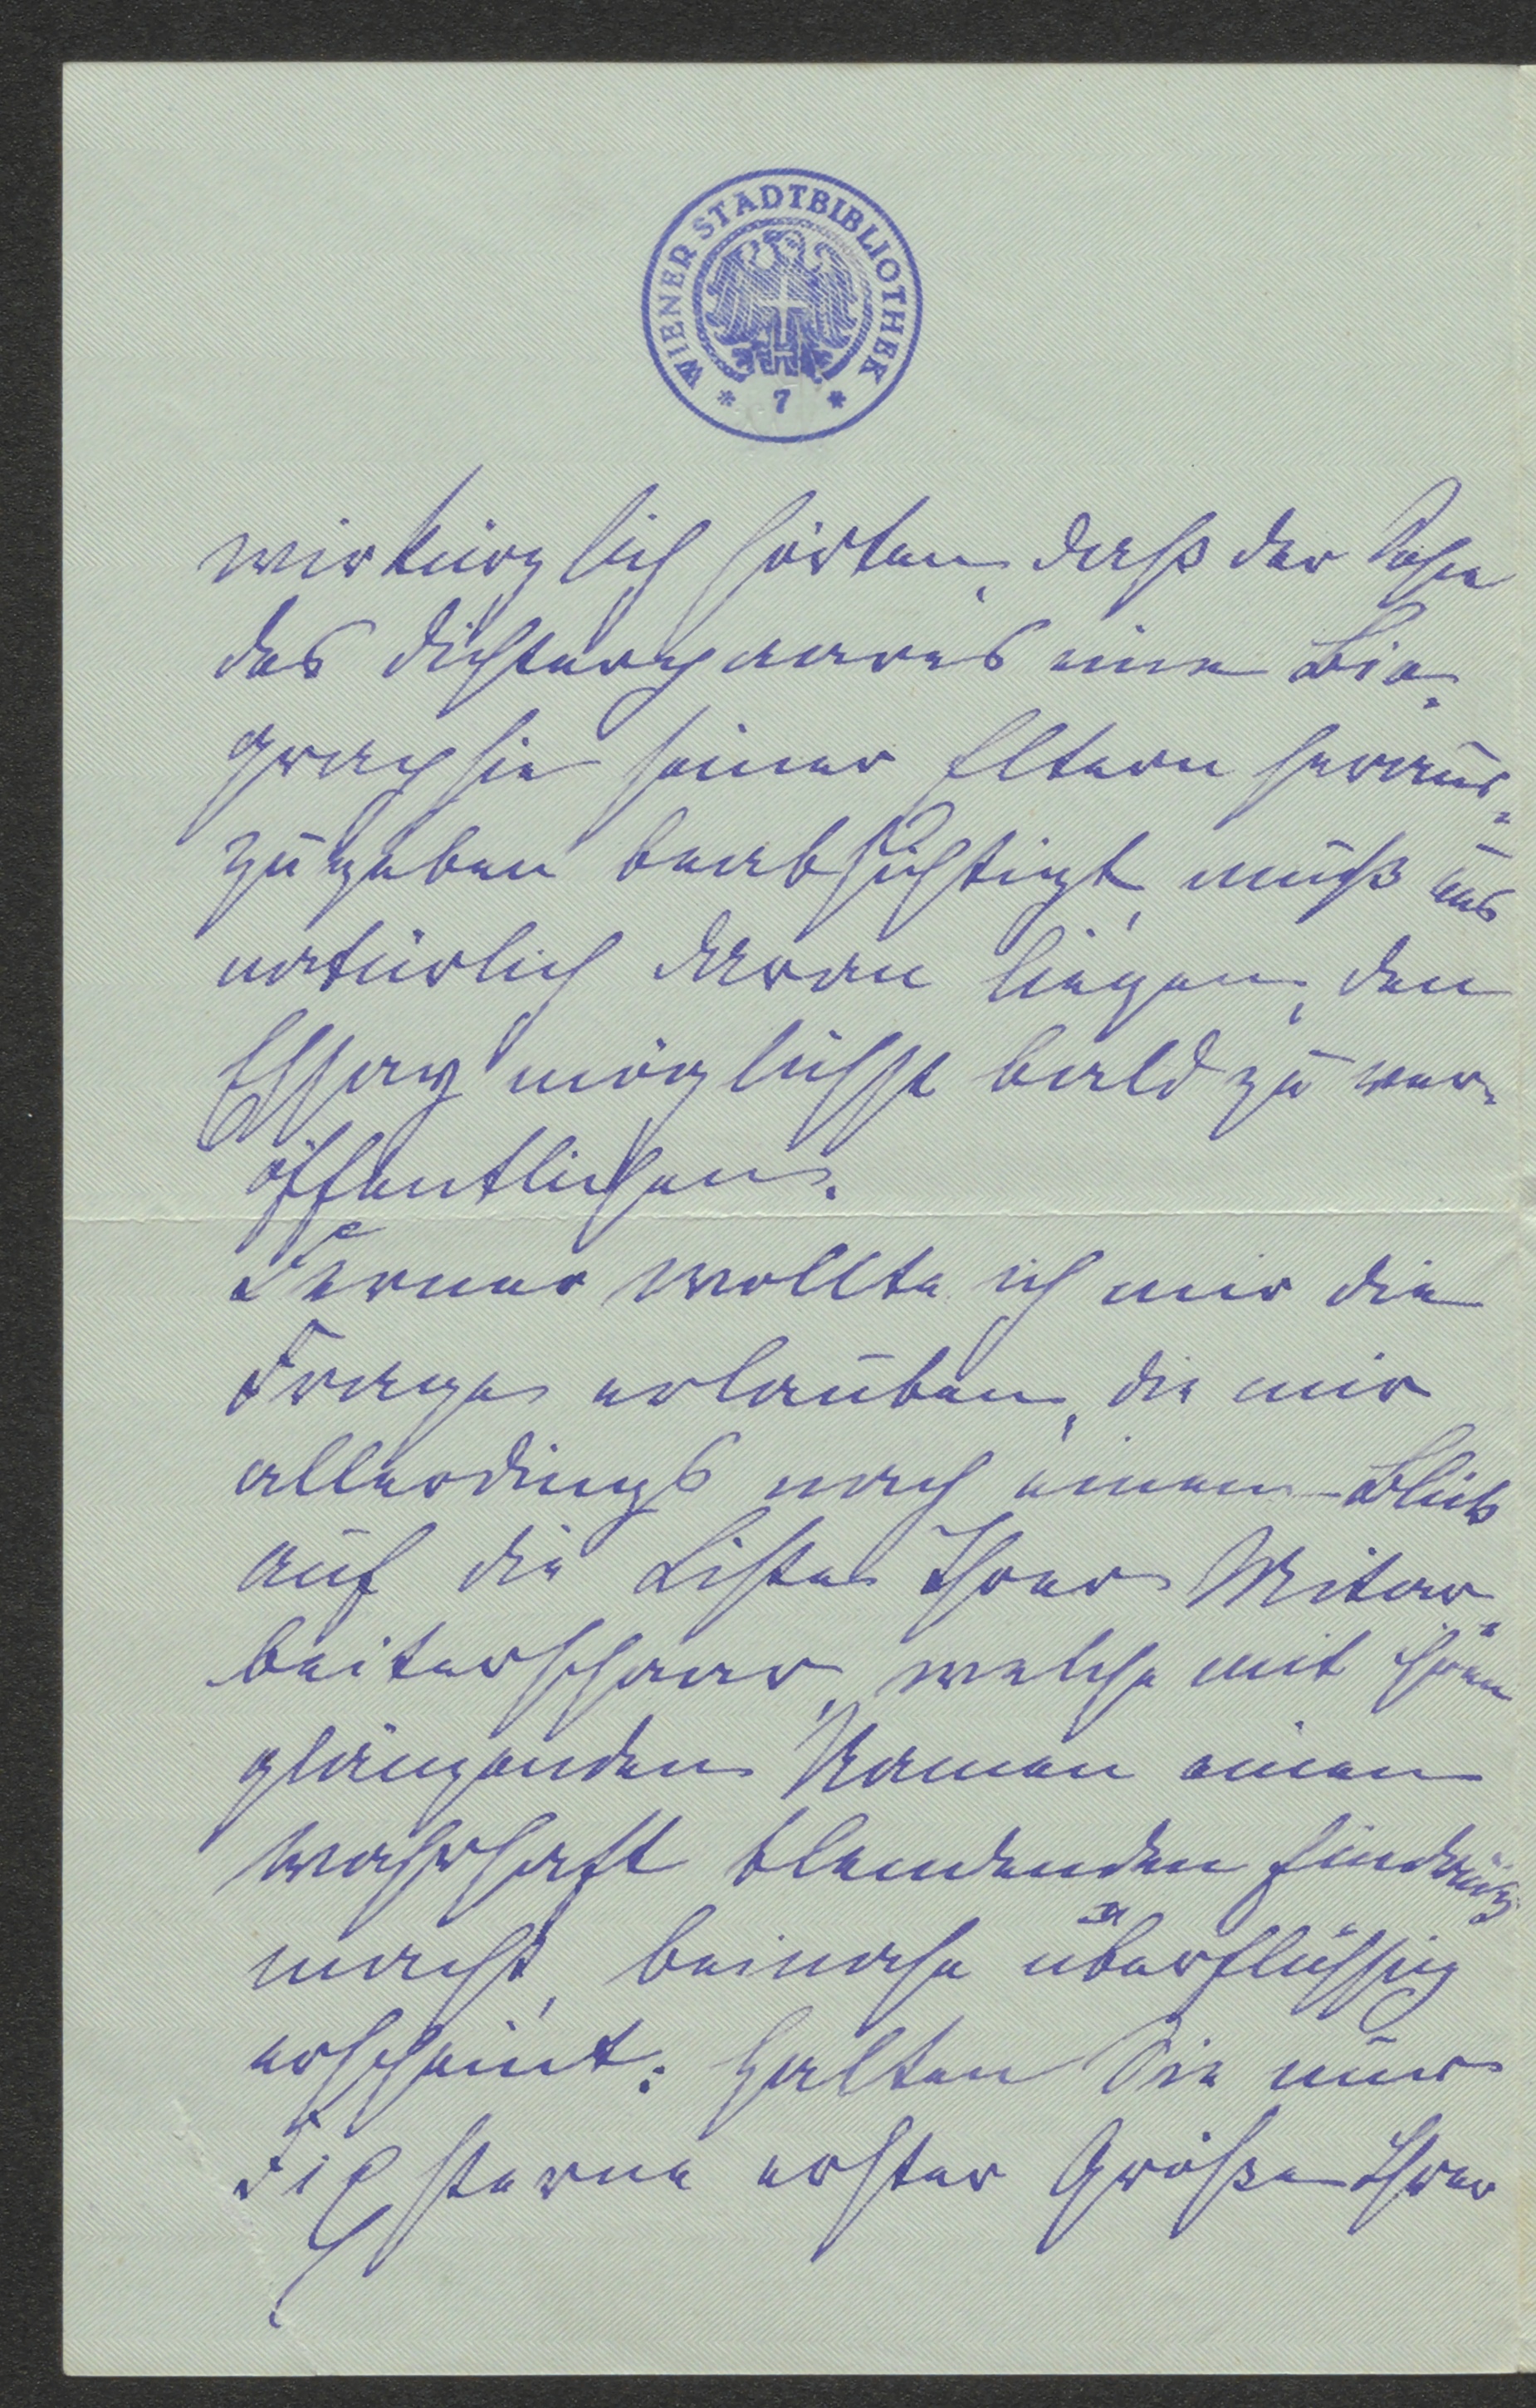 WIENER STADTBIBLIOTHEK
* 7 *
wir kürzlich hörten, daß der Sohn
des Dichterpaares eine Bio-
graphie seiner Eltern heraus-
zugeben beabsichtigt, muß uns
natürlich daran liegen, den
Essay möglichst bald zu ver-
öffentlichen.
Ferner wollte ich mir die
Frage erlauben, die mir
allerdings nach einem Blick
auf die Liste Ihrer Mitar-
beiterschaar, welche mit ihren
glänzenden Namen einen
wahrhaft blendenden Eindruck
macht, beinahe überflüssig
erscheint: Halten Sie nur
Fixsterne erster Größe Ihrer